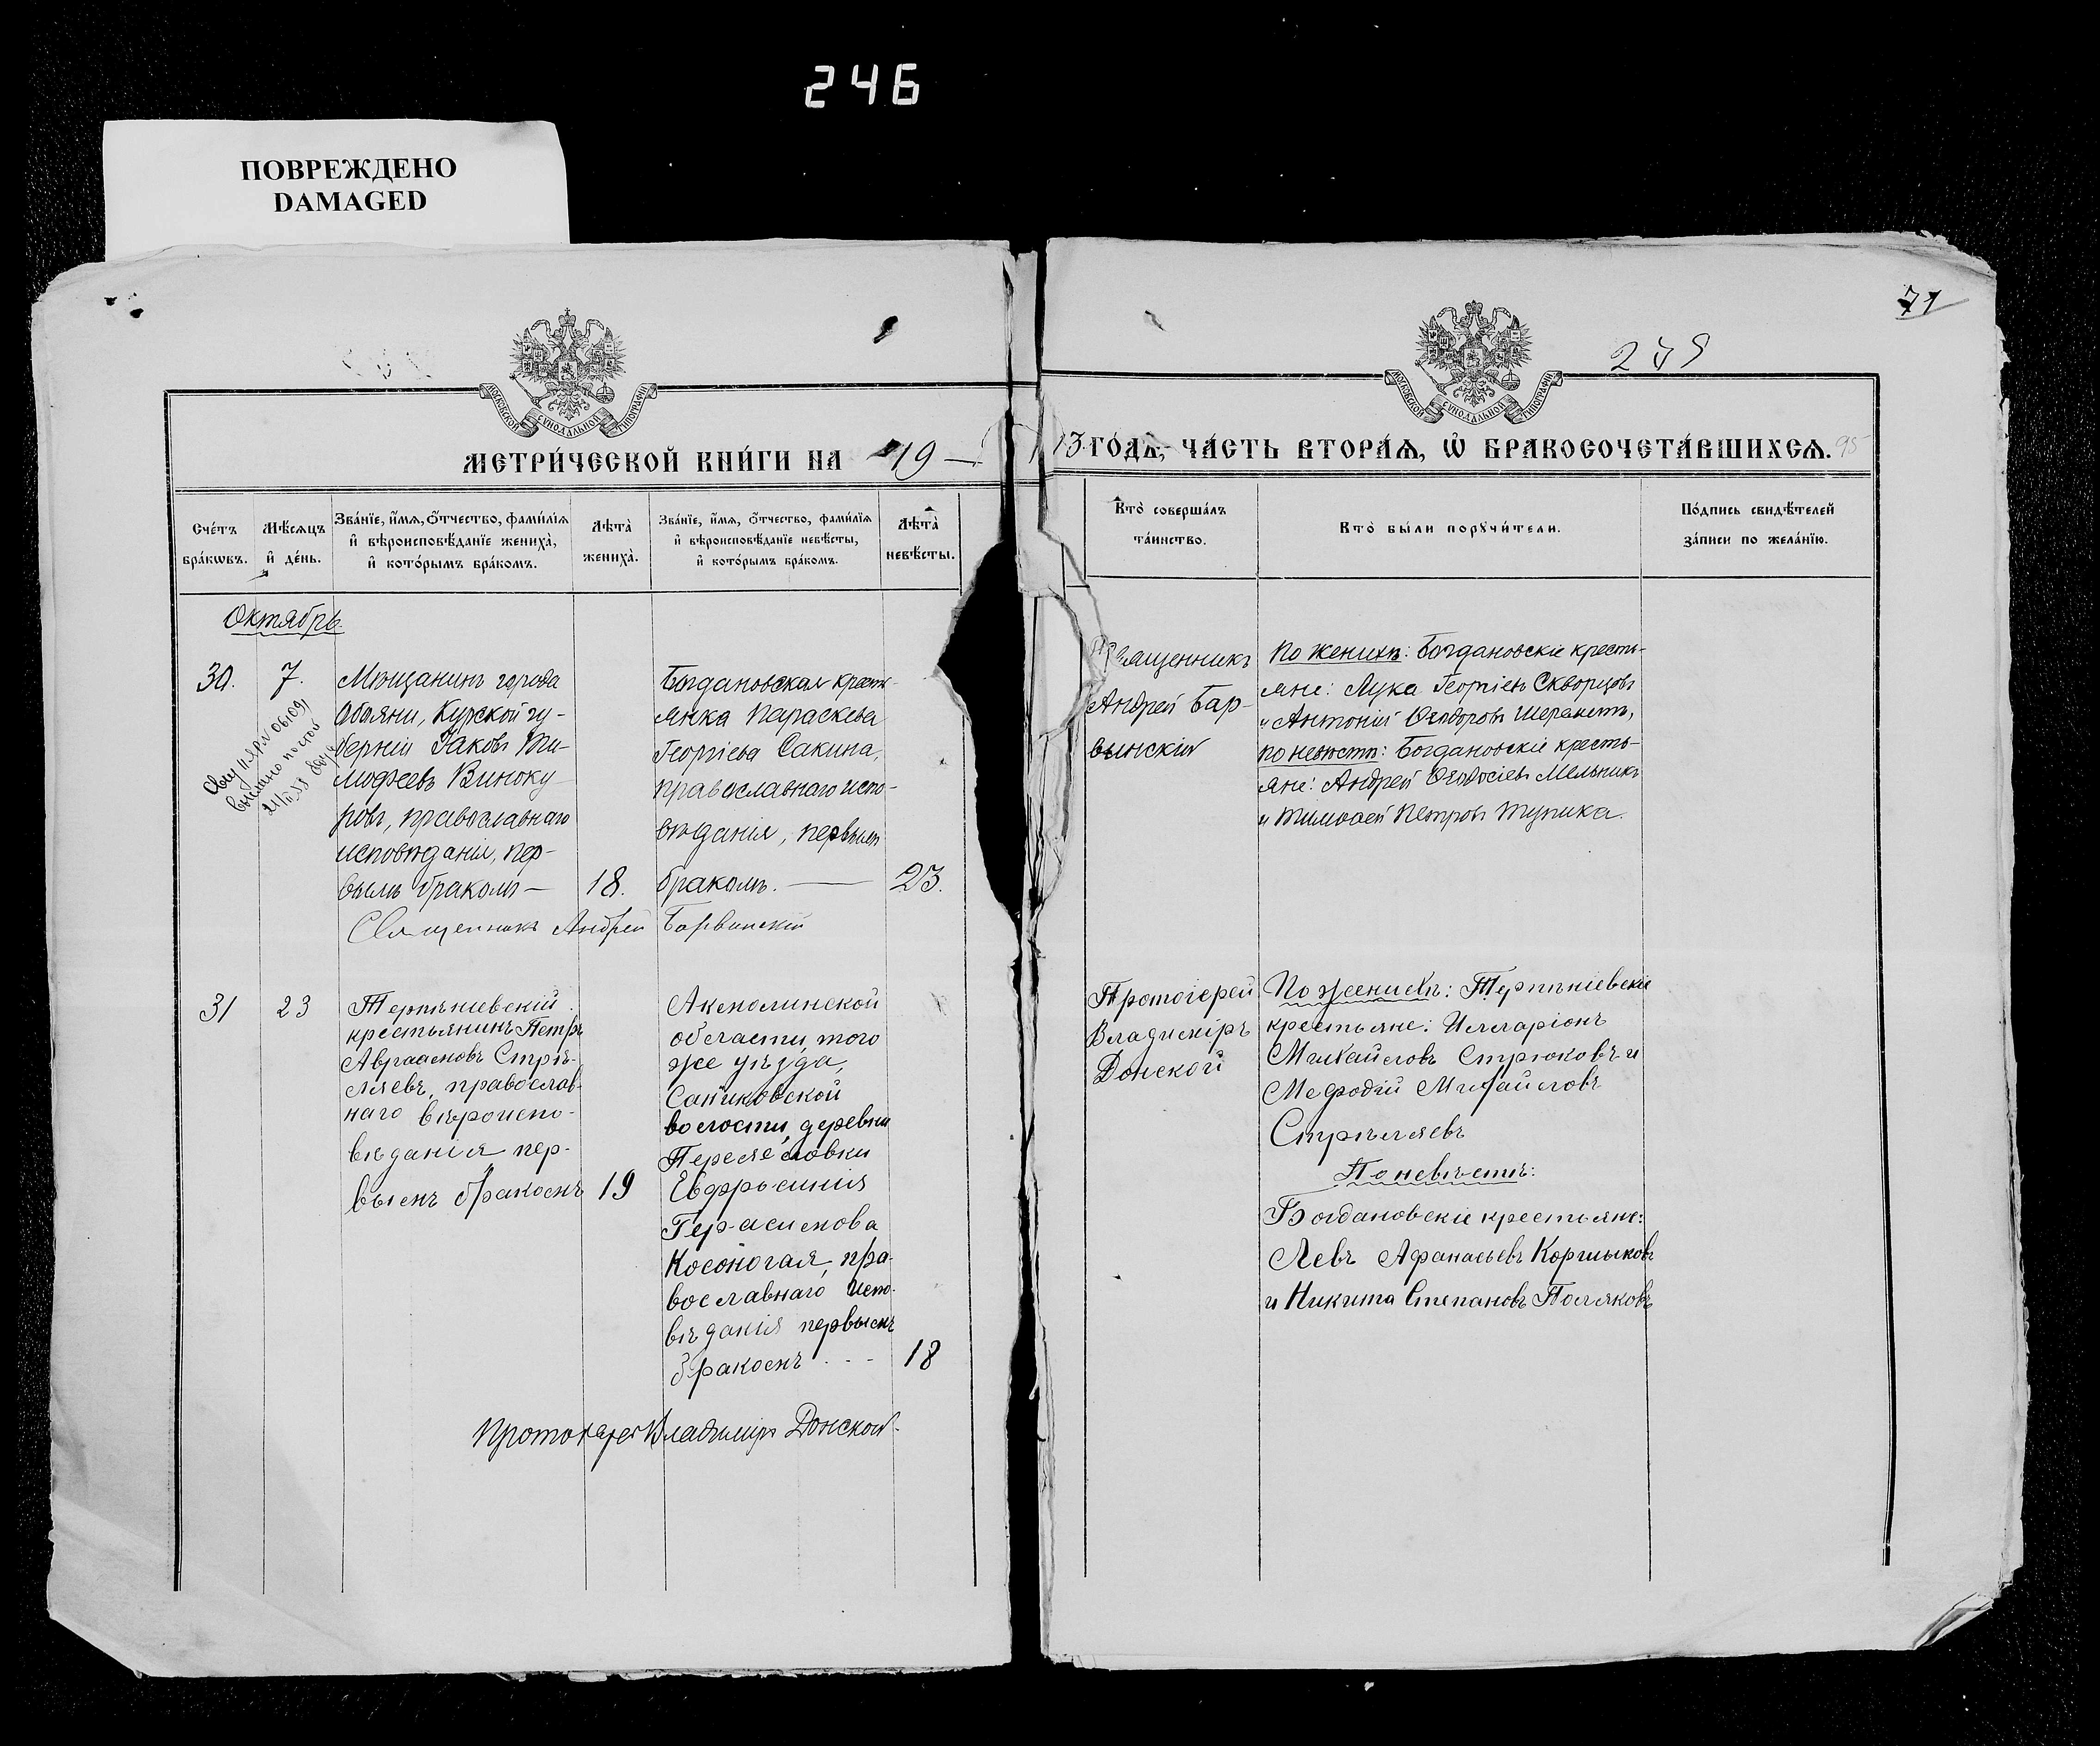 246
ПОВРЕЖДЕНО
DAMAGED
71
МОСКОВСКОЙ СѴНОДАЛЬНОЙ ТИПОГРАФІИ
МОСКОВСКОЙ СѴНОДАЛЬНОЙ ТИПОГРАФІИ
МЕТРИ́ЧЕСКОЙ КНИ́ГИ НА 19
13 ГО́ДЪ, ЧА́СТЬ ВТОРА́Ѧ, Ѡ҆ БРАКОСОЧЕТА́ВШИХСѦ. 95
Сче́тъ бра́кѡвъ.
Мѣ́сяцъ и҆ де́нь.
Зва́нїе, и҆́мѧ, ѻ҆́тчество, фами́лїѧ и҆ вѣроисповѣ́данїе жениха̀, и҆ кото́рымъ бра́комъ.
Лѣта̀ жениха̀.
Зва́нїе, и҆́мѧ, ѻ҆́тчество, фами́лїѧ и҆ вѣроисповѣ́данїе невѣ́сты, и҆ кото́рымъ бра́комъ.
Лѣта̀ невѣ́сты.
Кто̀ соверша́лъ та́инство.
Кто̀ бы́ли порꙋчи́тели.
По́дпись свидѣ́телей за́писи по жела́нїю.
Октябрь.
30.
7.
Мѣщанинъ города
Обояни, Курской гу-
берніи Іаковъ Ти-
мофеевъ Виноку-
ровъ, православнаго
исповѣданія, пер-
вымъ бракомъ —
18.
Богдановская кресть-
янка Параскева
Георгіева Сакина,
православнаго испо-
вѣданія, первымъ
бракомъ. —
23.
Священникъ
Андрей Бар-
вынскій
По женихѣ: Богдановскіе кресть-
яне: Лука Георгіевъ Скворцовъ
и Антоній Ѳеодоровъ Шереметъ,
по невѣстѣ: Богдановскіе кресть-
яне: Андрей Ѳеодосіевъ Мельникъ
и Тимофей Петровъ Тупика.
Священникъ Андрей Барвинскій
31
23
Терпѣніевскій
крестьянинъ Петръ
Авраамовъ Стрѣ-
ляевъ, православ-
наго вѣроиспо-
вѣданія пер-
вымъ бракомъ
19
Акмолинской
области, того
же уѣзда,
Санниковской
волости, деревни
Евфросинія
Герасимова
Косоногая, пра-
вославнаго испо-
вѣданія первымъ
бракомъ - - -
18
Протоіерей
Владиміръ
Донской
По женихѣ: Терпѣніевскіе
крестьяне: Илларіонъ
Михайловъ Стрюковъ и
Мефодій Михайловъ
Стрѣляевъ
По невѣстѣ:
Богдановскіе крестьяне:
Левъ Афанасьевъ
и Никита Степановъ Поляковъ
Протоіерей Владиміръ Донской.